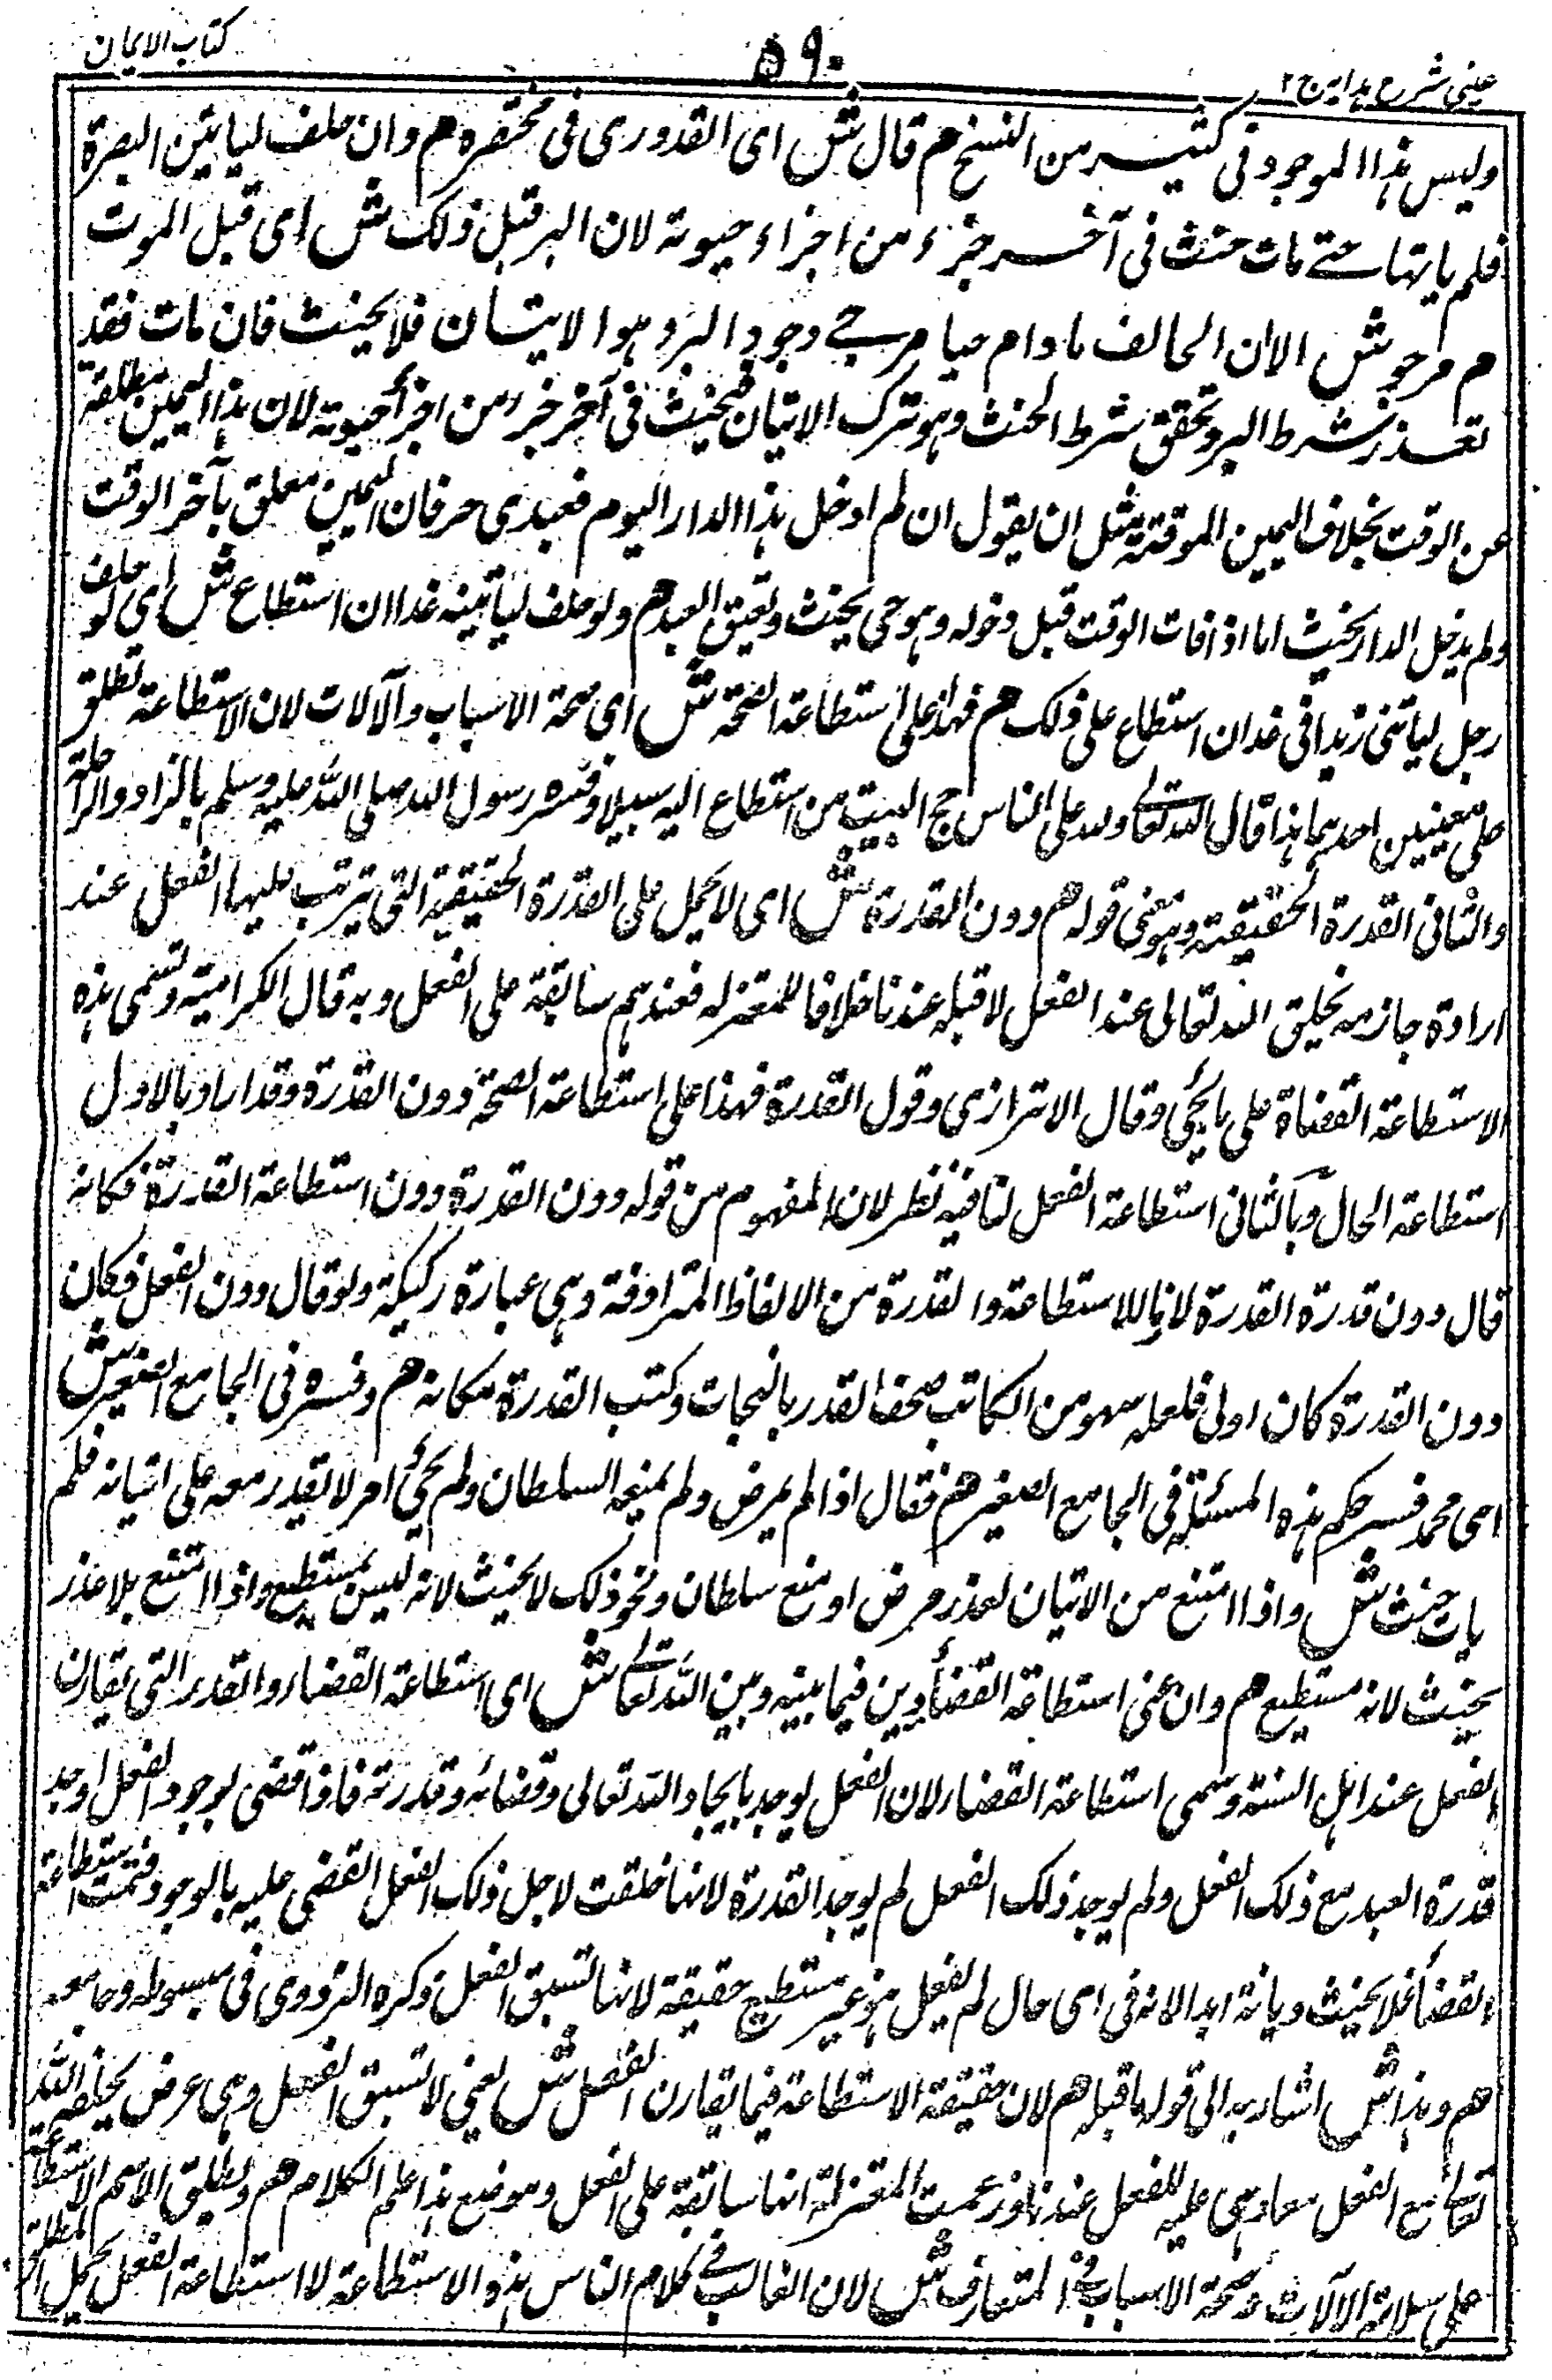 كتاب الايمان
٥٩٠
عينى شرح هدايه ج ٢
وليس هذا الموجود فى كثير من النسخ هم قال ش اى القدورى فى مختصره هم وان حلف لياتين البصرة
فلم ياتها حتى مات حنث فى آخر جزء من اجزاء حيوته لان البر قبل ذلك ش اى قبل الموت
م مرجو ش لان الحالف ما دام حيا مرجى وجود البر وهو الاتيان فلا يحنث فان مات فقد
تعذر شرط البر وتحقق شرط الحنث وهو ترك الاتيان فيحنث فى آخر جزء من اجزأ حيوته لان هذا اليمين مطلقة
عن الوقت بخلاف اليمين الموقتة مثل ان يقول ان لم ادخل هذا الدار اليوم فعبدى حر فان اليمين معلق بآخر الوقت
ولم يدخل الدار يحنث اما اذا فات الوقت قبل دخوله وهو حى يحنث ويعتق العبد هم ولو حلف لياتينه غدا ان استطاع ش اى لو حلف
رجل لياتنى زيدا فى غد ان استطاع على ذلك هم فهذا على استطاعة الصحة ش اى صحة الاسباب والآلات لان الاستطاعة تطلق
على معنيين احدهما هذا قال الله تعالى ولله على الناس حج البيت من استطاع اليه سبيلا وفسره رسول الله صلى الله عليه وسلم بالزاد والراحلة
والثانى القدرة الحقيقية وهو معنى قوله هم دون القدرة ش اى لا يحمل على القدرة الحقيقية التى يترتب عليها الفعل عند
ارادة جازمه بخلق الله تعالى عند الفعل لا قبله عندنا خلافا للمعتزله فعندهم سابقة على الفعل وبه قال الكرامية وتسمى هذه
الاستطاعة القضاة على ما يجئ وقال الاترازى وقول القدرة فهذا على استطاعة الصحة دون القدرة وقد اراد بالاول
استطاعة الحال وبالثانى استطاعة الفعل لنا فيه نظر لان المفهوم من قوله دون القدرة دون استطاعة القدرة فكانه
قال دون قدرة القدرة لان الاستطاعة والقدرة من الالفاظ المترادفة وهى عبارة ركيكة ولو قال دون الفعل فكان
دون القدرة كان اولى فلعله سهو من الكاتب صحف القدر بالنجات وكتب القدرة مكانه هم وفسره فى الجامع الصغير ش
اى محمد فسر حكم هذه المسئلة فى الجامع الصغير هم فقال اذا لم يمرض ولم يمنعه السلطان ولم يجئ امر لا يقدر معه على اتيانه فلم
يات حنث ش واذا امتنع من الاتيان لعذر مرض او منع سلطان ونحو ذلك لا يحنث لانه ليس بمستطيع واذا امتنع بلا عذر
يحنث لانه مستطيع هم وان عنى استطاعة القضأ دين فيما بينه وبين الله تعالى ش اى استطاعة القضاء والقدر التى يقارن
الفعل عند اهل السنة وتسمى استطاعة القضاء لان الفعل يوجد بايجاد الله تعالى وقضائه وقدرته فاذا قضى بوجود الفعل اوجد
قدرة العبد مع ذلك الفعل ولم يوجد ذلك الفعل لم يوجد القدرة لانها خلقت لاجل ذلك الفعل القضى عليه بالوجود فتمت استطاعة
القضأ فلا يحنث ديانة ابدا لانه فى اى حال لم يفعل هو غير مستطيع حقيقة لانها لتسبق الفعل ذكره البزودى فى مبسوطه وجامعه
هم وهذا ش اشار به الى قوله ما قبله هم لان حقيقة الاستطاعة فيما يقارن الفعل ش يعنى لا تسبق الفعل وهى عرض يخلقه الله
تعالى مع الفعل معا وهى علية للفعل عندنا وزعمت المعتزلة انها سابقة على الفعل وموضع هذا علم الكلام هم ويطلق الاسم الاستطاعة
على سلامة الآلات وصحة الاسباب فى المتعارف ش لان الغالب فى كلام الناس هذه الاستطاعة لا استطاعة الفعل يحمل المطلق